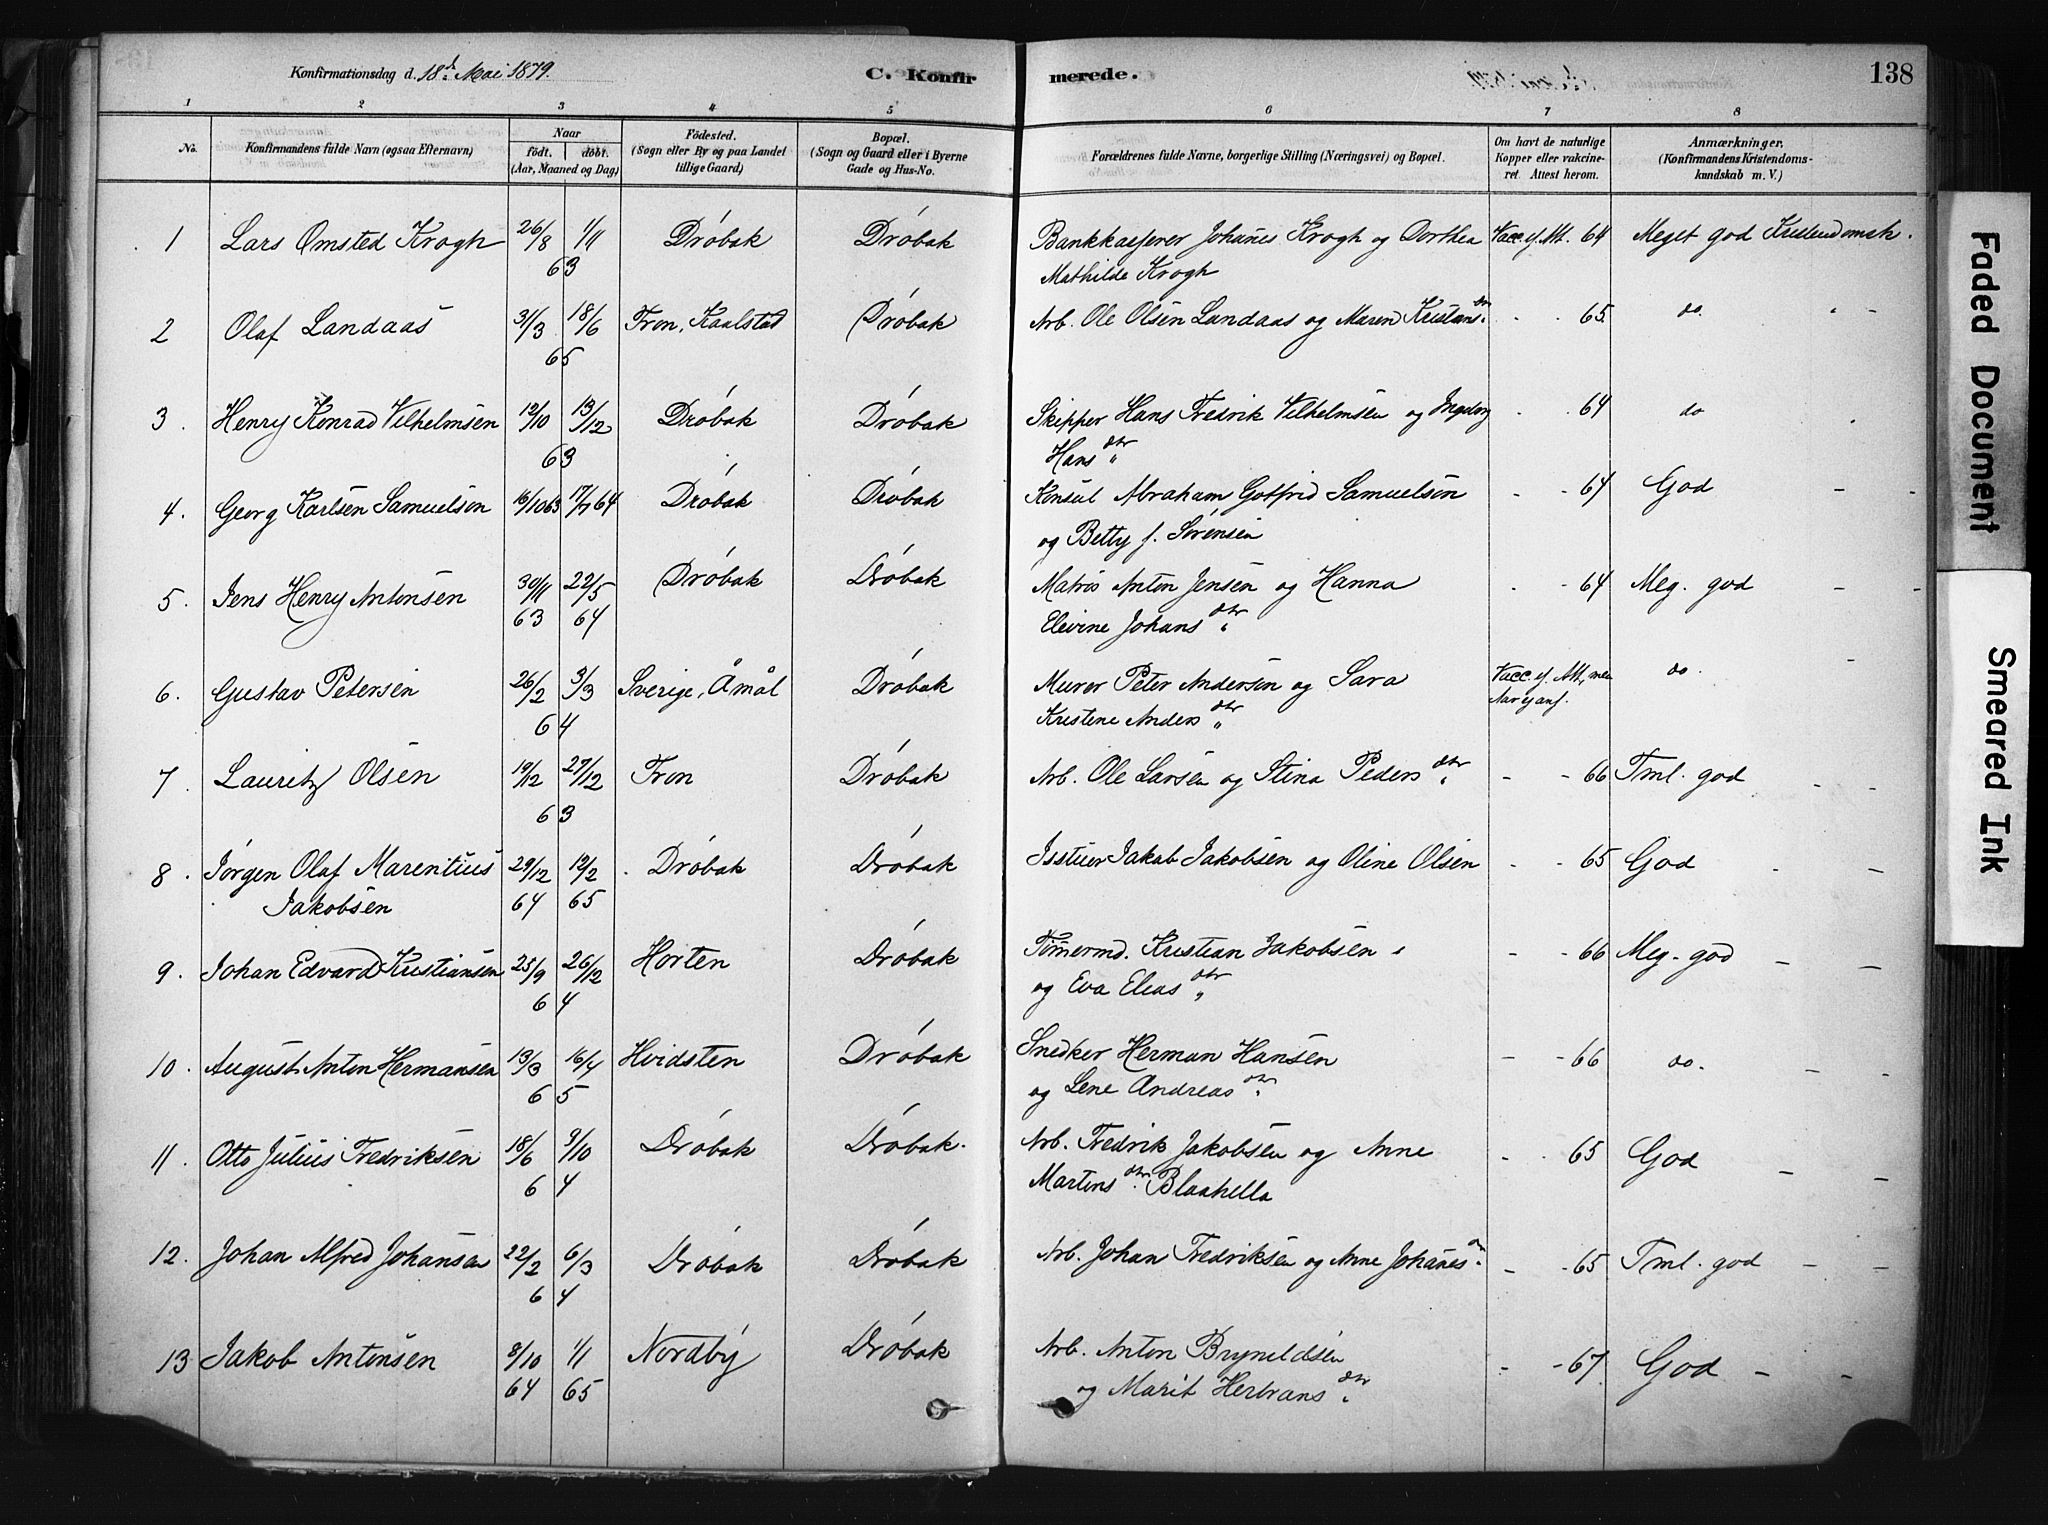 Konfirmationsdag d. 18de Mai 1879.
C. Konfir merede.
138
1 2 3 4 5 6 7 8
No. Konfirmandens fulde Navn (ogsaa Efternavn) Naar födt. döbt. (Aar, Maaned og Dag) Födested. (Sogn eller By og paa Landet tillige Gaard) Bopæl. (Sogn og Gaard eller i Byerne Gade og Hus-No. Forældrenes fulde Navne, borgerlige Stilling (Næringsvei) og Bopæl. Om havt de naturlige Kopper eller vakcineret. Attest herom. Anmærkninger. (Konfirmandens Kristendomskundskab m. V.)
1 Lars Omsted Krogh 26/8 1/11 63 Dröbak Dröbak Bankkasserer Johanes Krogh og Dorthea Vacc. ef. Att. 64 Meget god Kristendomsk.
Mathilde Krogh
2 Olaf Landaas 31/3 18/6 65 Fron, Kaalstad Dröbak Arb. Ole Olsen Landaas og Maren Kristans dtr - - 65. do. " -
3. Henry Konrad Vilhelmsen 12/10 13/12 63 Dröbak Dröbak Skipper Hans Fredrik Vilhelmsen og Ingeborg - - 64 do
Hans dtr
4. Georg Karlsen Samuelsen 16/10 63 17/7 64 Dröbak Dröbak Konsul Abraham Gotfrid Samuelson - - 64 God - -
og Betty f. Sörensen
5. Jens Henry Antonsen 30/11 63 22/5 64 Dröbak Dröbak Matros Anton Jensen og Hanna - - 64 Meg. god - -
Elevine Johans dtr
6. Gustav Petersen 26/2 3/3 64 Sverige, Åmål Dröbak Murer Peter Andersen og Sara Vacc. ef. Att., men do. -
Kristene Anders dtr Aar ej anf.
7. Lauritz Olsen 19/12 27/12 63 Fron Dröbak Arb. Ole Larsen og Stina Peders dtr - - 66 Tml. god - -
8. Jörgen Olaf Marentius 29/12 64 12/2 65 Dröbak Dröbak Jakob Jakobsen og Oline Olsen - - 65 God - -
Jakobsen
9. Johan Edvard Kristiansen 25/9 26/12 64 Horten Dröbak Tömermd. Kristian Jakobsen - - 66 Meg. god - -
og Eva Elias dtr
10. August Anton Hermansen 13/3 16/4 65 Hvidsten Dröbak Snedker Herman Hansen - - 66 do. - -
og Lene Andreas dtr
11. Otto Julius Fredriksen 18/6 9/10 64 Dröbak Dröbak. Arb. Fredrik Jakobsen og Anne - - 65 God - -
Martins dtr Blaahella
12. Johan Alfred Johansen 22/2 6/3 64 Dröbak Dröbak Arb. Johan Fredriksen og Anne Johanes dtr - - 65 Tml. god - -
13 Jakob Antonsen 9/10 64 1/1 65 Nordby Dröbak Arb. Anton Bryneldsen - - 67. God - -
og Marit Herbrans dtr
Faded Document
Smeared Ink